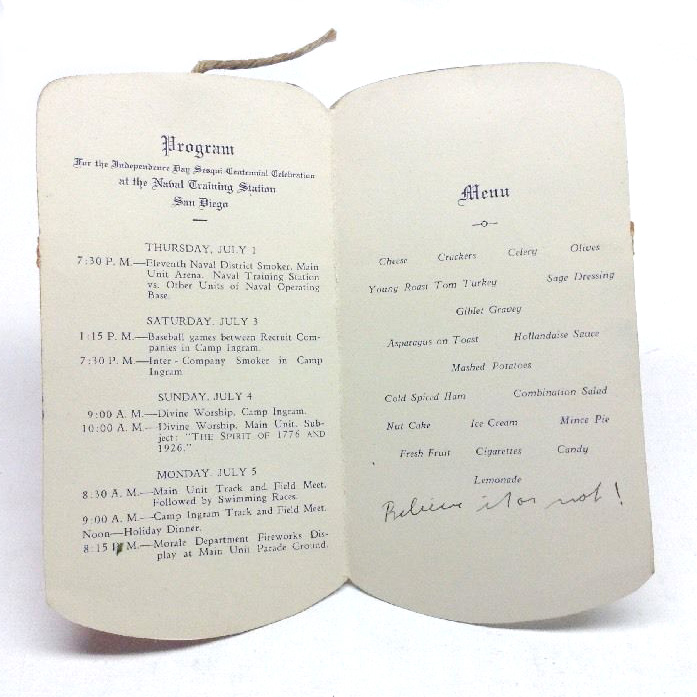 Program
For the Independence Day Sesqui Centennial Celebration
at the Naval Training Station
San Diego
THURSDAY, JULY 1
7:30 P. M.—Eleventh Naval District Smoker, Main
Unit Arena. Naval Training Station
vs. Other Units of Naval Operating
Base.
SATURDAY, JULY 3
1:15 P. M.—Baseball games between Recruit Com-
panies in Camp Ingram.
7:30 P. M.—Inter-Company Smoker in Camp
Ingram
SUNDAY, JULY 4
9:00 A. M.—Divine Worship, Camp Ingram.
10:00 A. M.—Divine Worship, Main Unit. Sub-
ject: "THE SPIRIT OF 1776 AND
1926."
MONDAY, JULY 5
8:30 A. M.—Main Unit Track and Field Meet.
Followed by Swimming Races.
9:00 A. M.—Camp Ingram Track and Field Meet.
Noon—Holiday Dinner.
8:15 P. M.—Morale Department Fireworks Dis-
play at Main Unit Parade Ground.
Menu
Cheese Crackers Celery Olives
Young Roast Tom Turkey Sage Dressing
Giblet Gravey
Asparagus on Toast Hollandaise Sauce
Mashed Potatoes
Cold Spiced Ham Combination Salad
Nut Cake Ice Cream Mince Pie
Fresh Fruit Cigarettes Candy
Lemonade
Believe it or not!